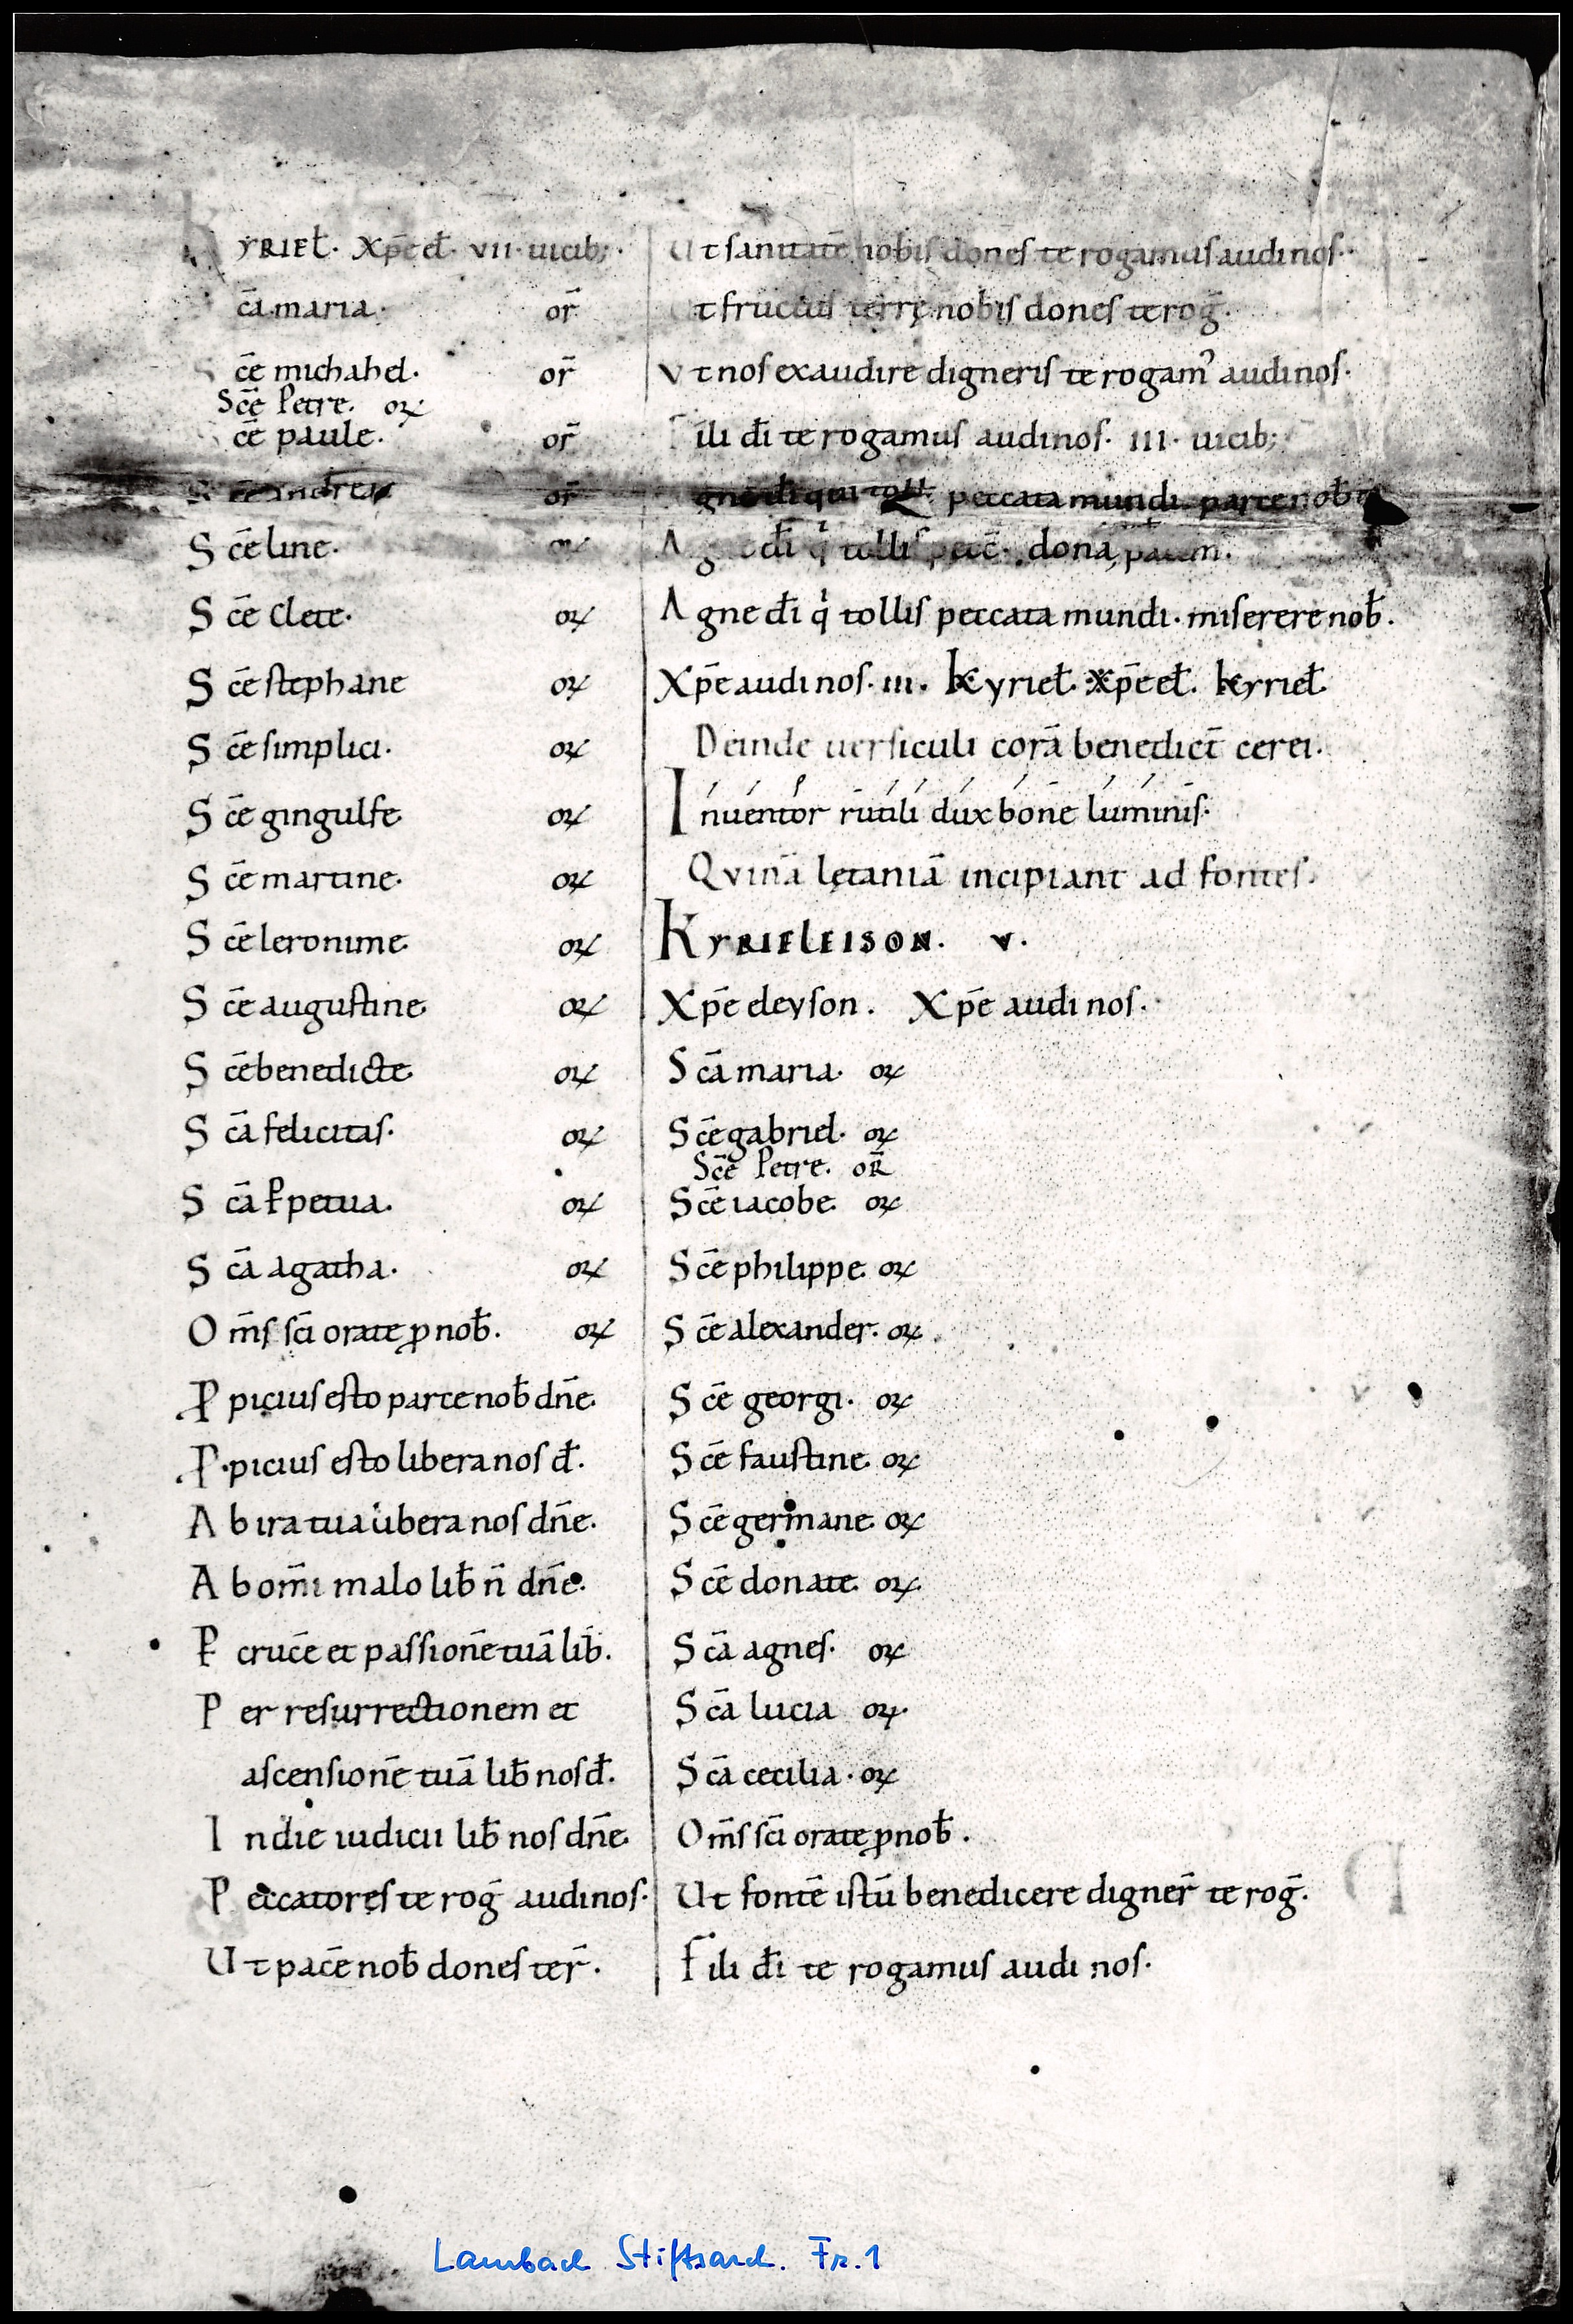 yriel̄. Xp̄e el̄. vii. uicib;.
cā maria. or̄
cē michahel. or̄
Scē Petre. or
cē paule. or̄
cē andrea or̄
S cē line. or
S cē Clete. or
S cē stephane or
S cē simplici. or
S cē gingulfe or
S cē martine. or
S cē Ieronime. or
S cē augustine. or
S cē benedicte. or
S cā felicitas. or
S cā ꝑpetua. or
S cā agatha. or
O m̄s sc̄i orate ꝓ nob̄. or
Ꝓ picius esto parce nob̄ dn̄e.
Ꝓ picius esto libera nos d̄.
A b ira tua libera nos dn̄e.
A b om̄i malo lib̄ n̄ dn̄e.
Ꝑ crucē et passionē tuā lib̄.
P er resurrectionem et
ascensionē tuā lib̄ nos d̄.
I n die iudicii lib̄ nos dn̄e.
P eccatores te roḡ audi nos.
U t pacē nob̄ dones te r̄.
U t sanitatē nobis dones te rogamus audi nos.
t fructus terrę nobis dones te roḡ.
V t nos exaudire digneris te rogamꝰ audi nos.
F ili dī te rogamus audi nos. iii. uicib;
gne dī qui toll̄ peccata mundi. parce nobis
A g dī qͥ tollis pecc̄. dona pacem.
A gne dī qͥ tollis peccata mundi. miserere nob̄.
Xp̄e audi nos. iii. Kyriel̄. Xp̄e el̄. Kyrriel̄.
Deinde uersiculi corā benedict̄ cerei.
Inuentor rutili dux bone luminis.
Qvinā lętaniā incipiant ad fontes.
Kyrieleison. v.
Xp̄e eleyson. Xp̄e audi nos.
S cā maria. or
S cē gabriel. or
Scē Petre. oR̄
S cē iacobe. or
S cē philippe. or
S cē alexander. or
S cē georgi. or
S cē faustine. or
S cē germane. or
S cē donate. or
S cā agnes. or
S cā lucia or.
S cā cecilia. or
O m̄s sc̄i orate ꝓ nob̄.
Ut fontē istū benedicere digner̄ te roḡ.
F ili dī te rogamus audi nos.
Lambach Stiftsarch. Fr. 1